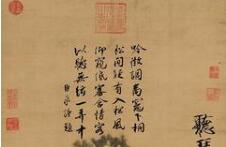 吟徵調商竈下桐
松間疑有入松風
仰窺低審含情客
以聽無絃一弄中
臣京謹題
聽琴